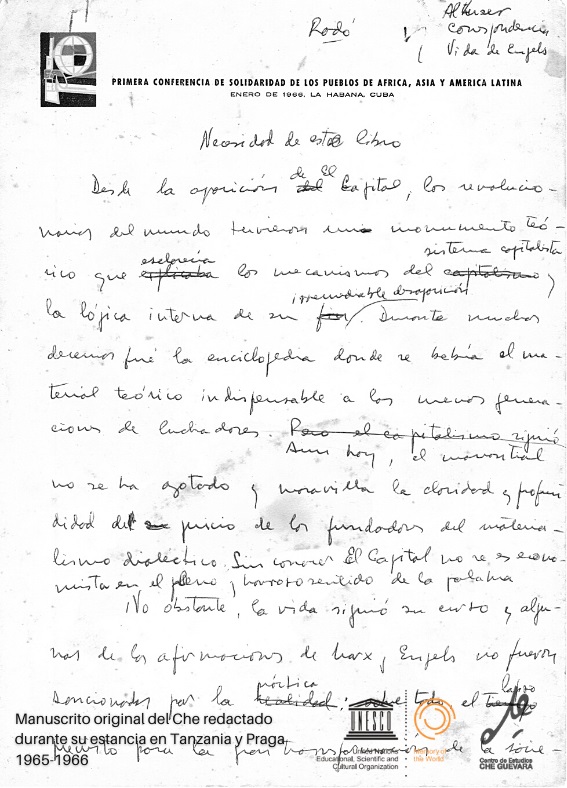 Althusser
Rodó
Correspondencia
Vida de Engels
PRIMERA CONFERENCIA DE SOLIDARIDAD DE LOS PUEBLOS DE AFRICA, ASIA Y AMERICA LATINA
ENERO DE 1966, LA HABANA, CUBA
Necesidad de este libro
de El
Desde la aparición del Capital, los revolucio-
narios del mundo tuvieron un monumento teó-
esclarecía sistema capitalista
rico que explicaba los mecanismos del capitalismo y
irremediable desaparición
la lógica interna de su . Durante muchos
decenios fué la enciclopedia donde se bebía el ma-
terial teórico indispensable a las nuevas genera-
ciones de luchadores. Pero el capitalismo siguió
Aun hoy, el manantial
no se ha agotado y maravilla la claridad y profun-
didad del su juicio de los fundadores del materia-
lismo dialéctico. Sin conocer El Capital no se es econo-
mista en el pleno y honroso sentido de la palabra
No obstante, la vida siguió su curso y algu-
nas de las afirmaciones de Marx y Engels no fueron
práctica lapso
sancionadas por la realidad; sobre todo el tiempo
previsto para la gran transformación de la socie-
Manuscrito original del Che redactado
durante su estancia en Tanzania y Praga
1965-1966
UNESCO
United Nations
Educational, Scientific and
Cultural Organization
Memory of
the World
Centro de Estudios
CHE GUEVARA